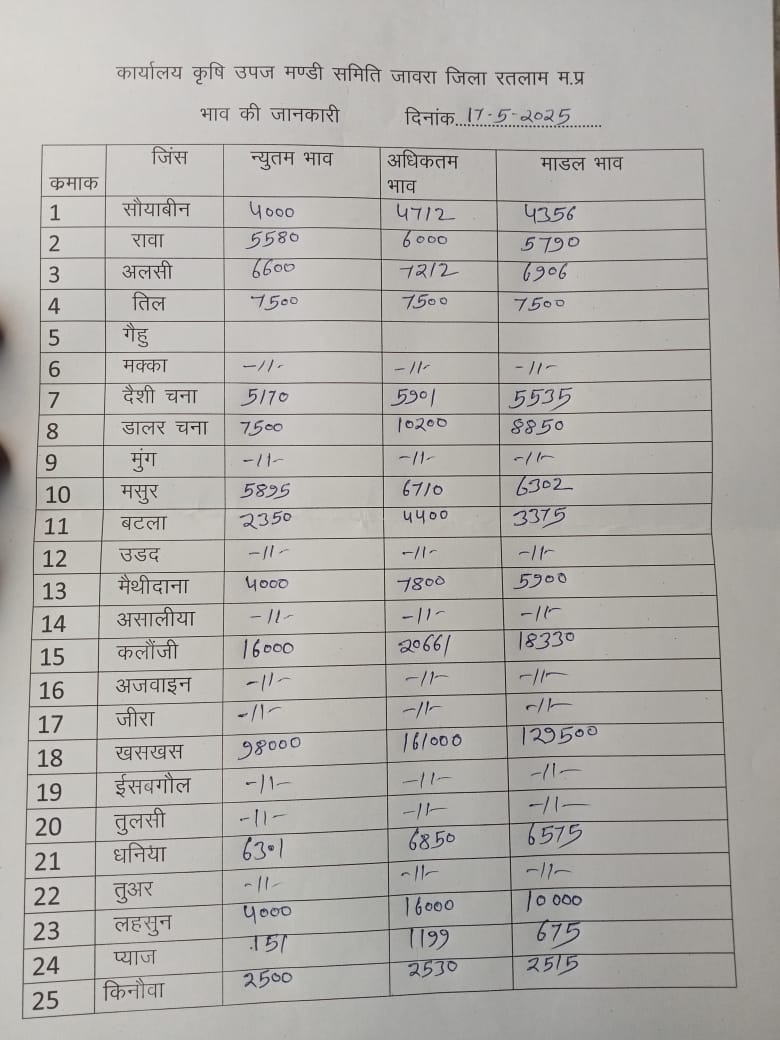 कार्यालय कृषि उपज मण्डी समिति जावरा जिला रतलाम म.प्र
भाव की जानकारी दिनांक 17-5-2025
कमाक जिंस न्युतम भाव अधिकतम भाव माडल भाव
1 सौयाबीन 4000 4712 4356
2 रावा 5580 6000 5790
3 अलसी 6600 7212 6906
4 तिल 7500 7500 7500
5 गैहु
6 मक्का -11- -11- -11-
7 दैशी चना 5170 5901 5535
8 डालर चना 7500 10200 8850
9 मुंग -11- -11- -11-
10 मसुर 5895 6710 6302
11 बटला 2350 4400 3375
12 उडद -11- -11- -11-
13 मैथीदाना 4000 7800 5900
14 असालीया -11- -11- -11-
15 कलौंजी 16000 20661 18330
16 अजवाइन -11- -11- -11-
17 जीरा -11- -11- -11-
18 खसखस 98000 161000 129500
19 ईसबगौल -11- -11- -11-
20 तुलसी -11- -11- -11-
21 धनिया 6301 6850 6575
22 तुअर -11- -11- -11-
23 लहसुन 4000 16000 10000
24 प्याज 151 1199 675
25 किनौवा 2500 2530 2515